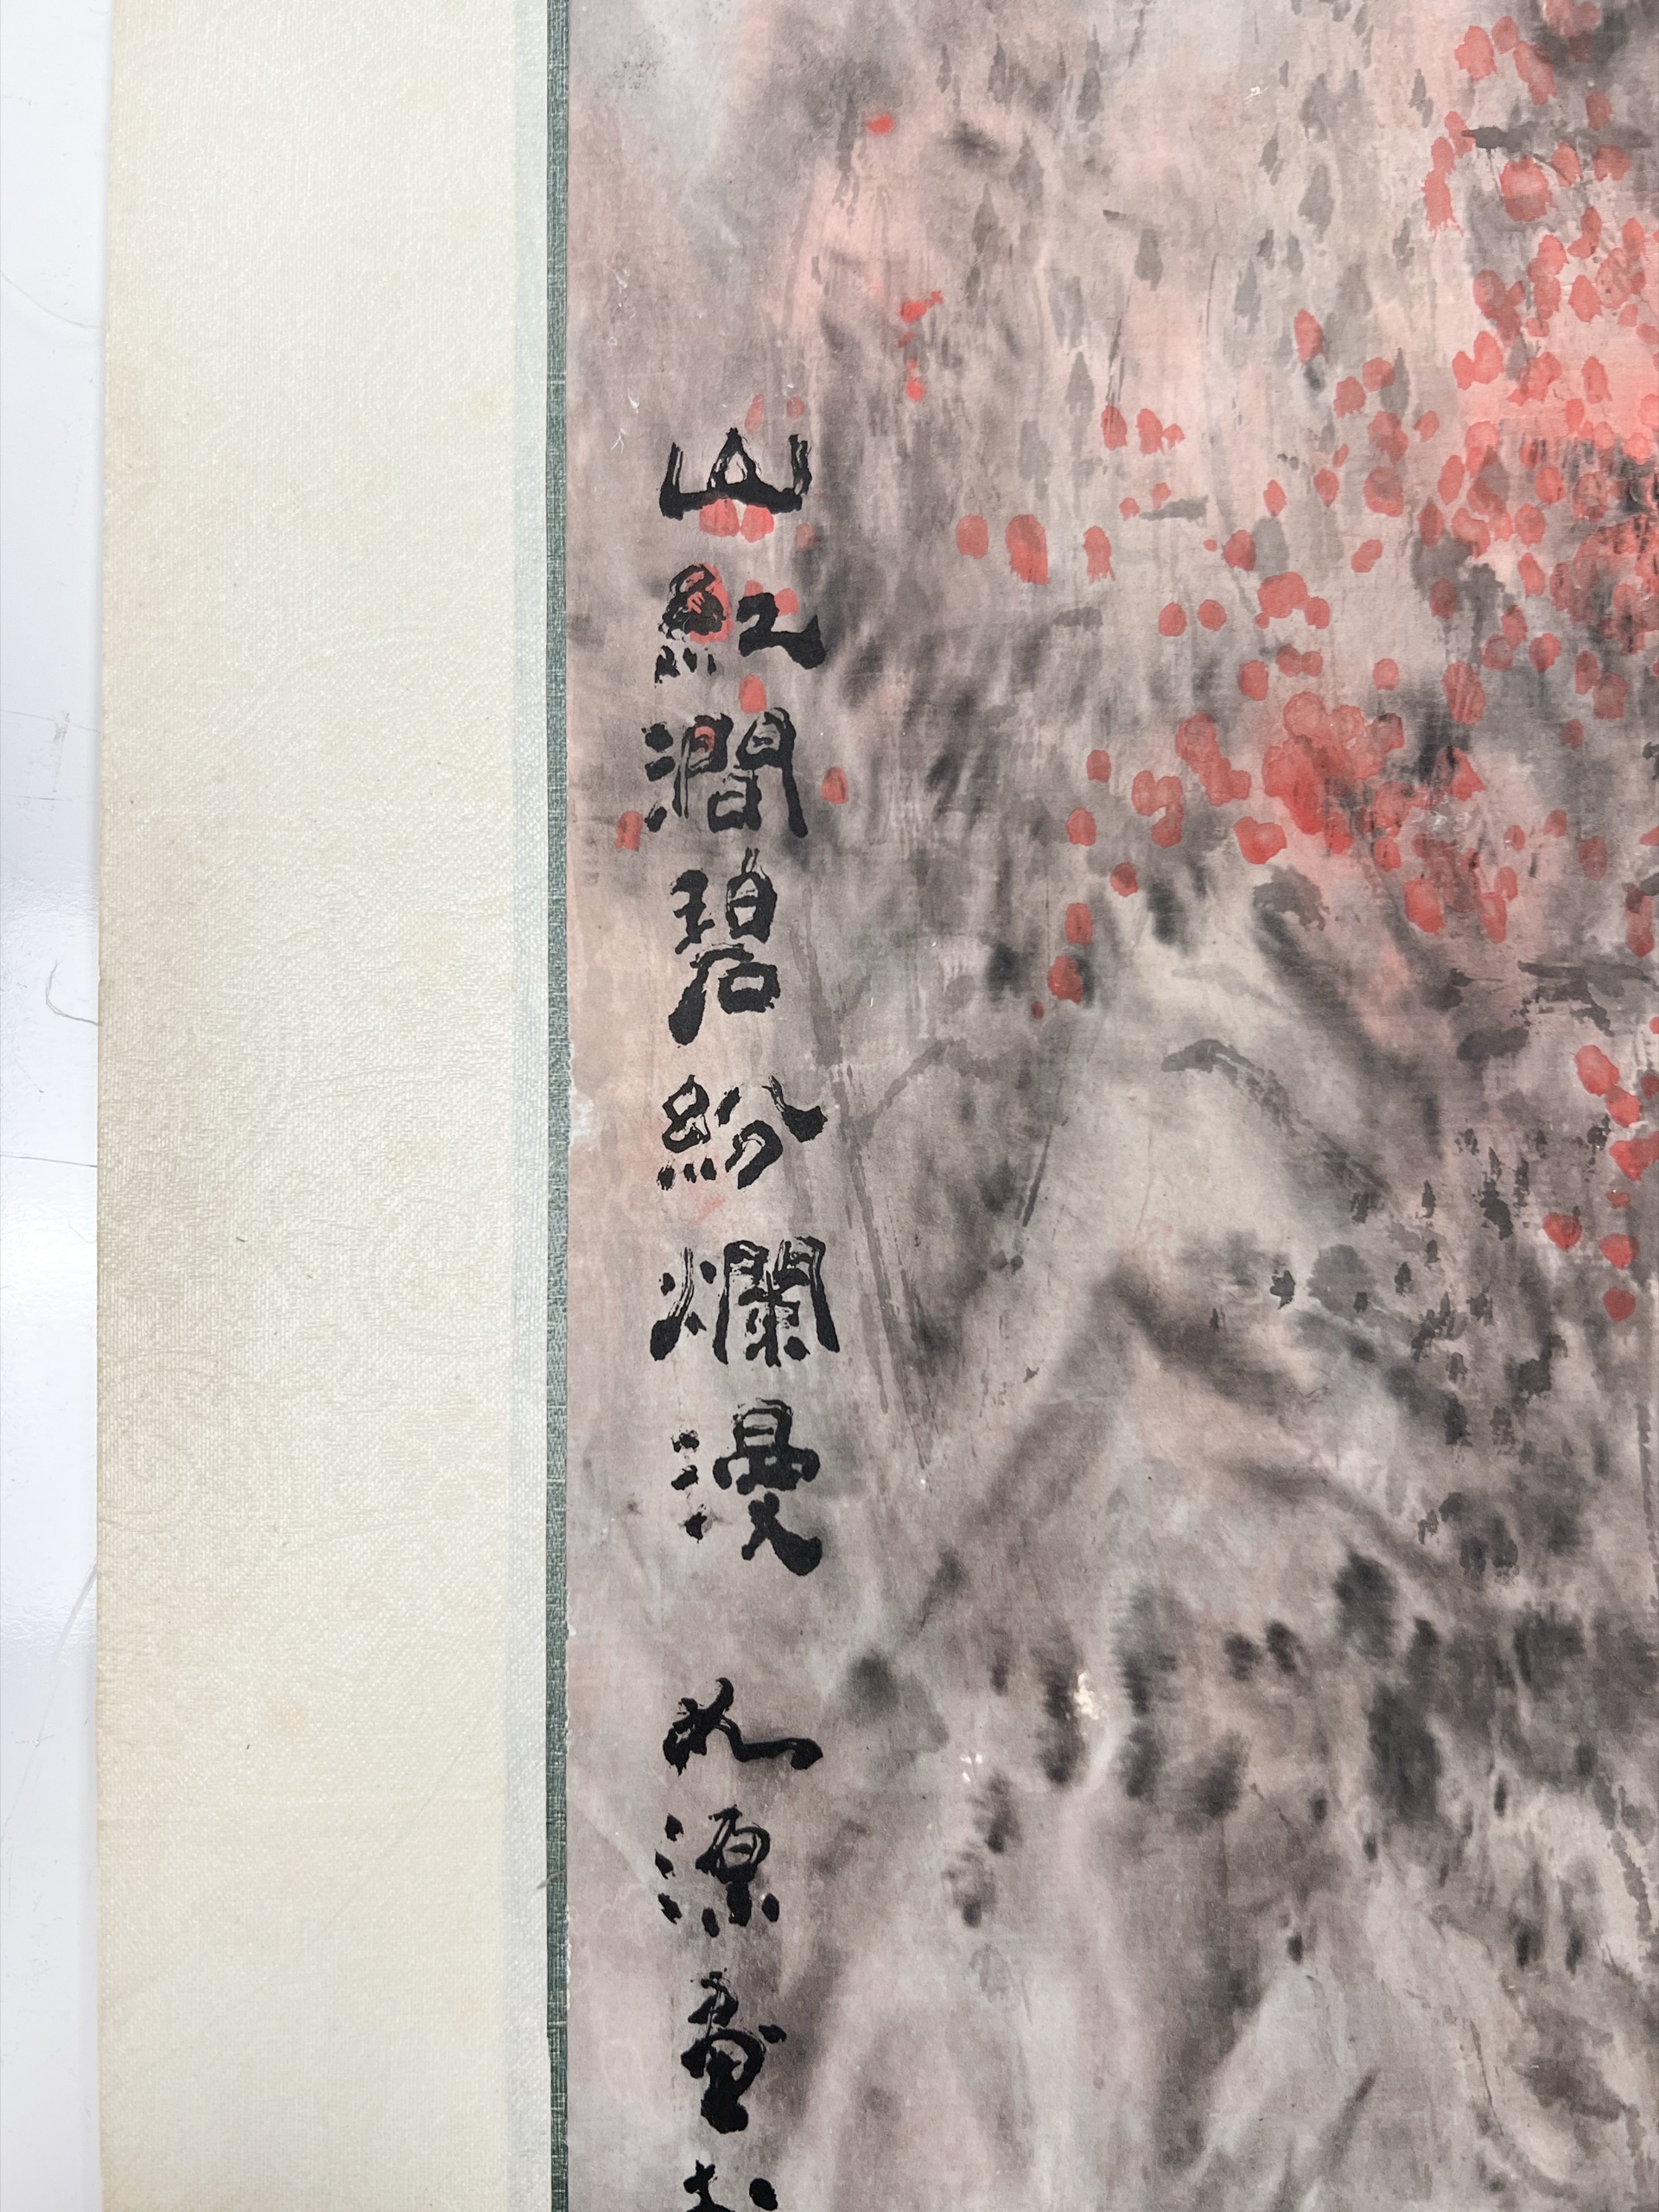 山紅澗碧紛爛漫 如源畫於